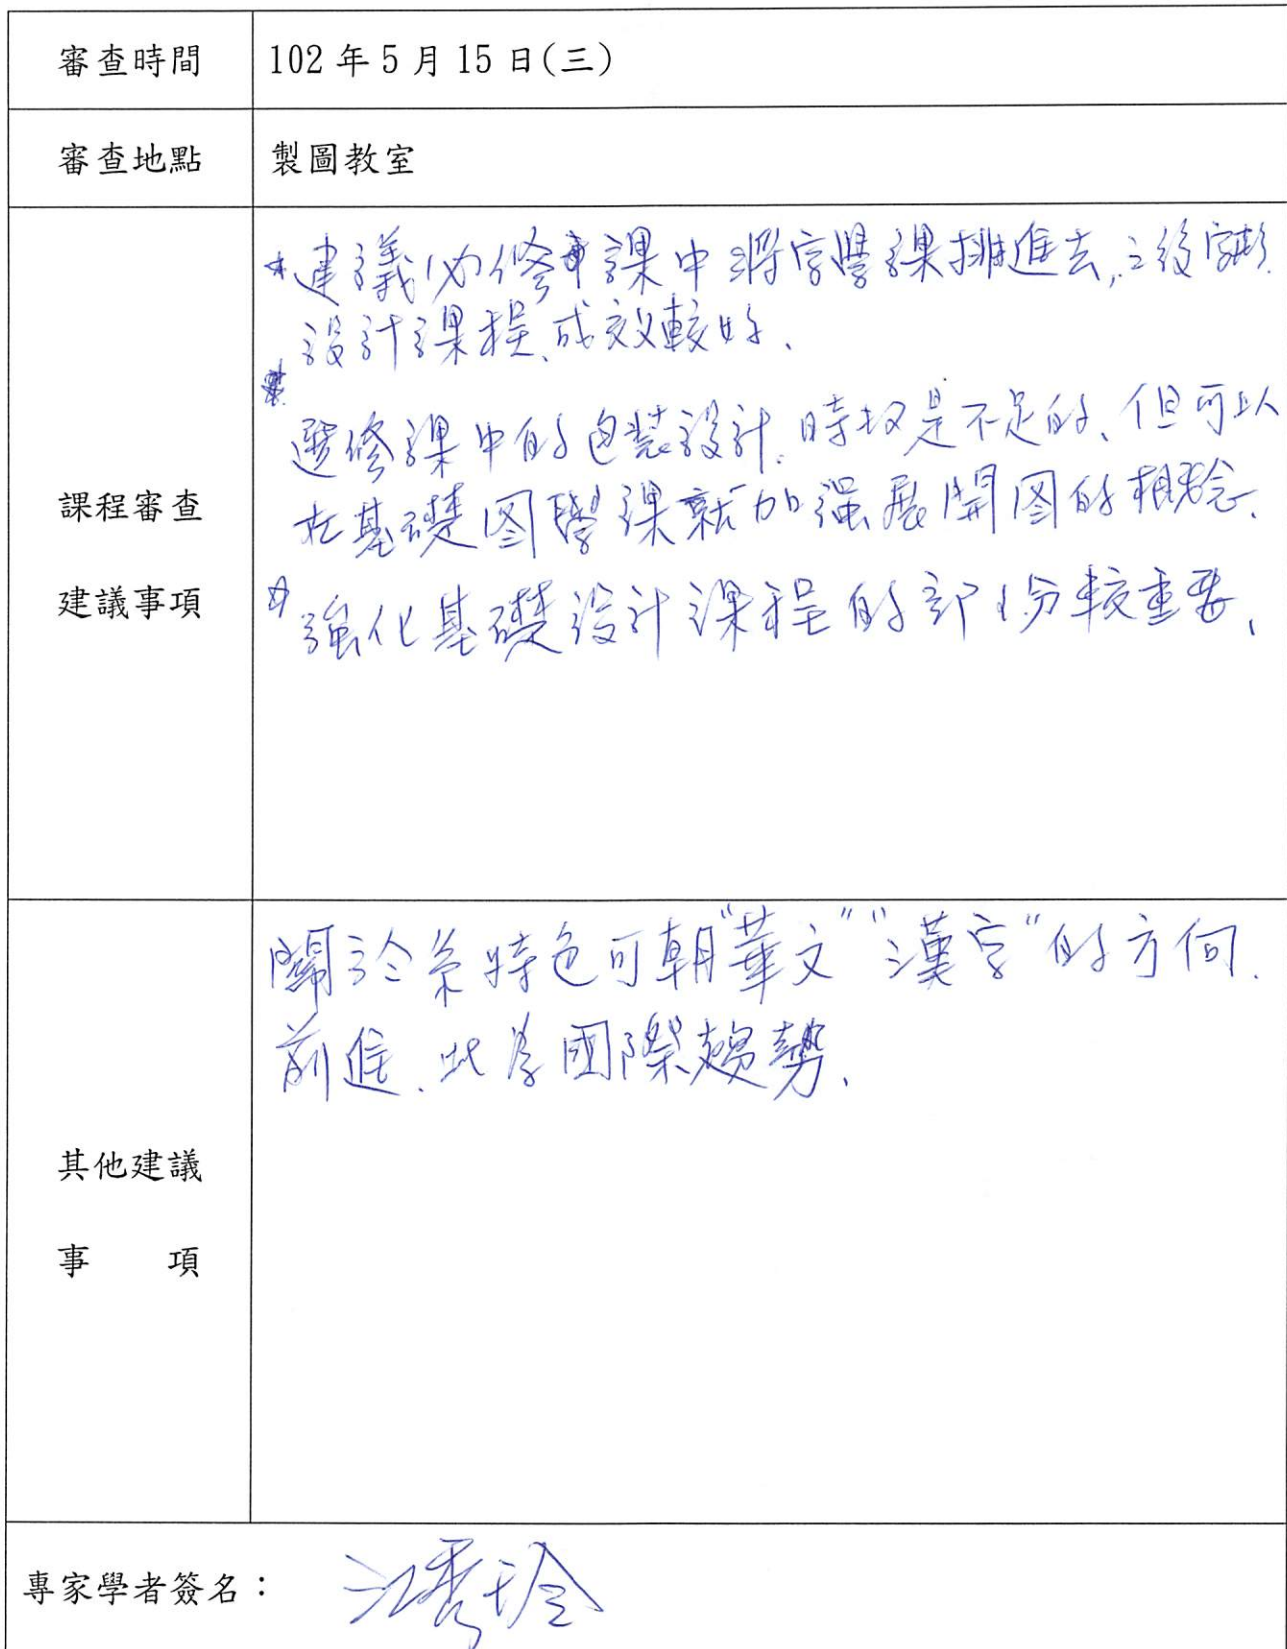 審查時間
102年5月15日(三)
審查地點
製圖教室
課程審查
建議事項
*建議必修課中將字學課排進去,之後字形
設計課程、成效較好、
*
選修課中的包裝設計、時投是不足的、但可以
在基礎図學課就加强展開図的概念、
*強化基礎設計課程的部份較重要、
其他建議
事 項
關於系特色可朝"華文""漢字"的方向、
前進、此為國際趨勢、
專家學者簽名:
江秀玲